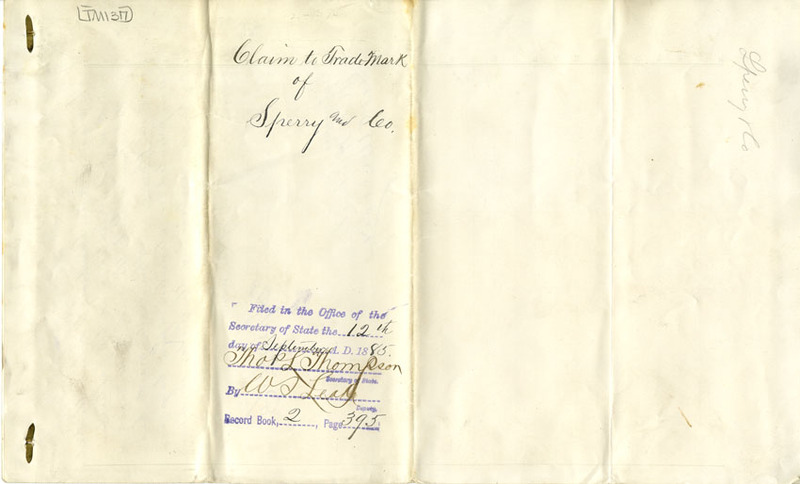 TM1317
Claim to Trade Mark
of
Sperry and Co.
Filed in the Office of the
Secretary of State the 12th
day of September A. D. 1885.
Thos L Thompson
Secretary of State.
By W
Deputy.
Record Book, 2, Page 395.
Sperry & Co